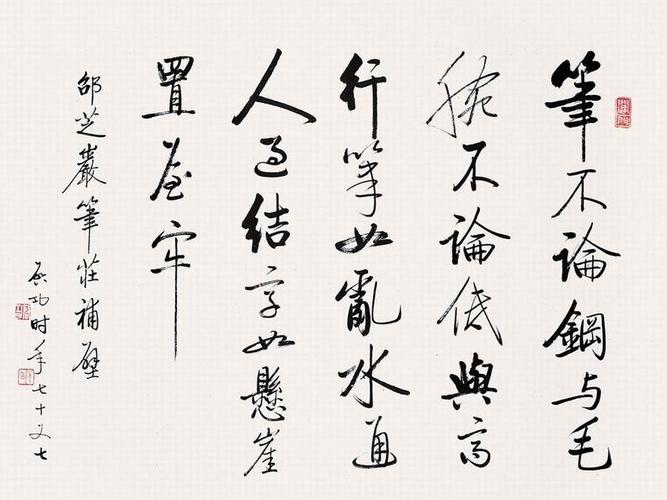 筆不論鋼与毛
腕不論低與高
行筆如亂水通
人過結字如懸崖
置屋牢
邵芝巖筆莊補壁
啟功时年七十又七